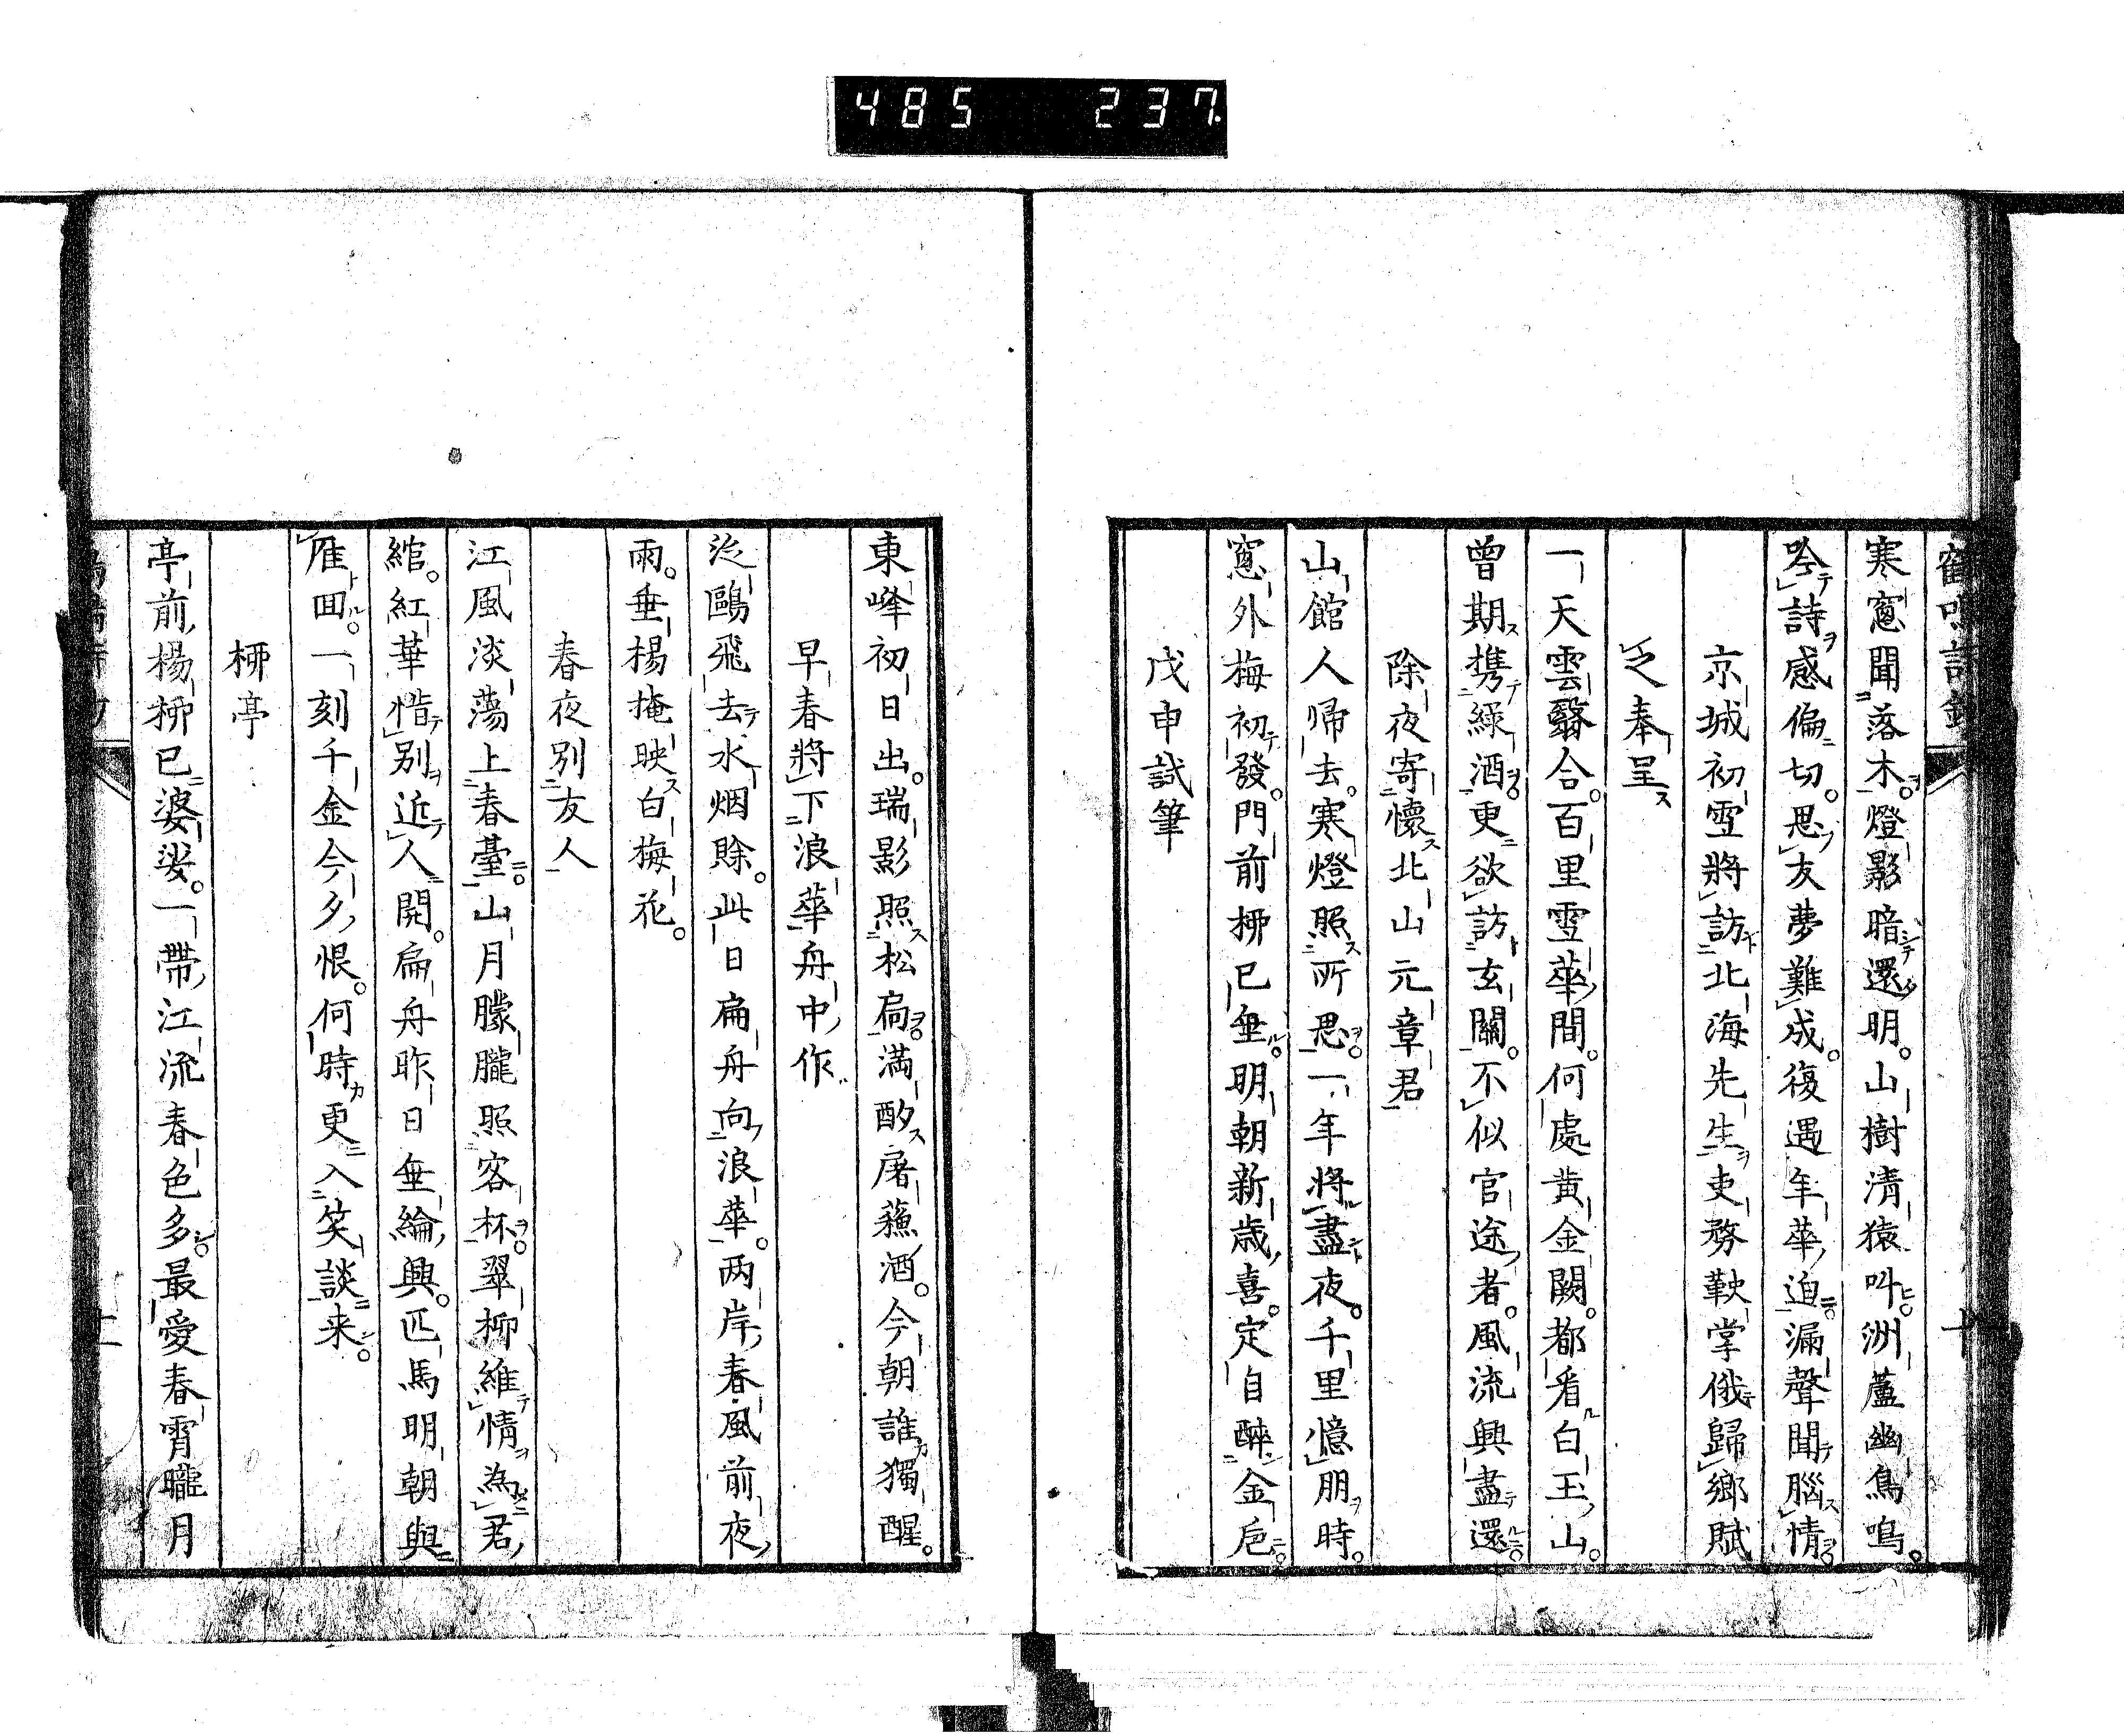 485 237
鳴詩
寒窻聞落木。燈影暗還明。山樹淸猿叫。洲蘆幽鳥鳴。
吟詩感偏切。思友夢難成。復遇年華迫。漏聲聞腦情。
京城初雪將訪北海先生吏務鞅掌俄歸鄉賦
之奉呈
一天雲翳合。百里雪華間。何處黃金闕。都看白玉山。
曾期携綠酒。更欲訪玄關。不似官途者。風流興盡還。
除夜寄懷北山元章君
山館人歸去。寒燈照所思。一年將盡夜。千里憶朋時。
窻外梅初發。門前柳已垂。明朝新歲喜。定自醉金巵。
戊申試筆
十
東峰初日出。瑞影照松扃。滿酌屠蘇酒。今朝誰獨醒。
早春將下浪華舟中作
泛鷗飛去水烟賒。此日扁舟向浪華。两岸春風前夜
雨。垂楊掩映白梅花。
春夜別友人
江風淡蕩上春臺。山月朦朧照客杯。翠柳維情為君
綰。紅華惜別近人開。扁舟昨日垂綸興。匹馬明朝與
雁回。一刻千金今夕恨。何時更入笑談来。
柳亭
亭前楊柳已婆娑。一帶江流春色多。最愛春宵朧月